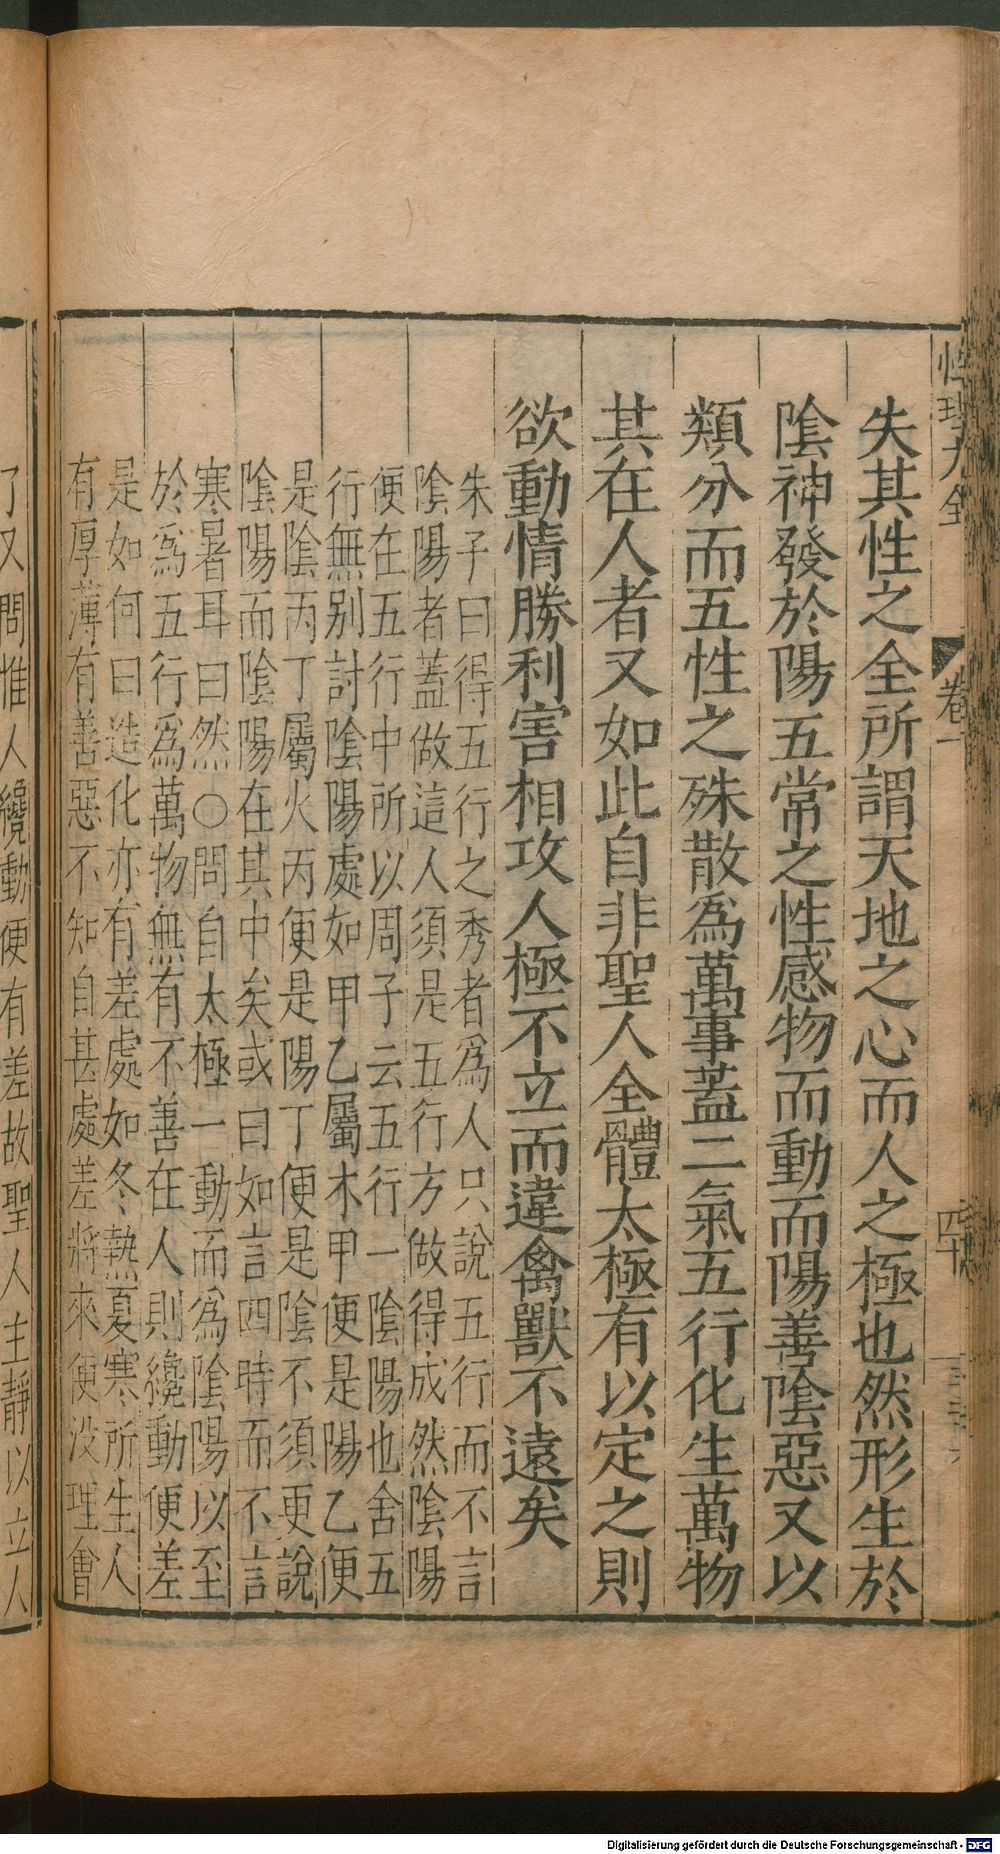 性理大全
卷一
失其性之全所謂天地之心而人之極也然形生於
陰神發於陽五常之性感物而動而陽善陰惡又以
類分而五性之殊散爲萬事蓋二氣五行化生萬物
其在人者又如此自非聖人全體太極有以定之則
欲動情勝利害相攻人極不立而違禽獸不遠矣
朱子曰得五行之秀者爲人只說五行而不言
陰陽者蓋做這人須是五行方做得成然陰陽
便在五行中所以周子云五行一陰陽也舍五
行無別討陰陽處如甲乙屬木甲便是陽乙便
是陰丙丁屬火丙便是陽丁便是陰不須更說
陰陽而陰陽在其中矣或曰如言四時而不言
寒暑耳曰然〇問自太極一動而爲陰陽以至
於爲五行爲萬物無有不善在人則纔動便差
是如何曰造化亦有差處如冬熱夏寒所生人
有厚薄有善惡不知自甚處差將來便没理會
了又問惟人纔動便有差故聖人主靜以立人
Digitalisierung gefördert durch die Deutsche Forschungsgemeinschaft - DFG